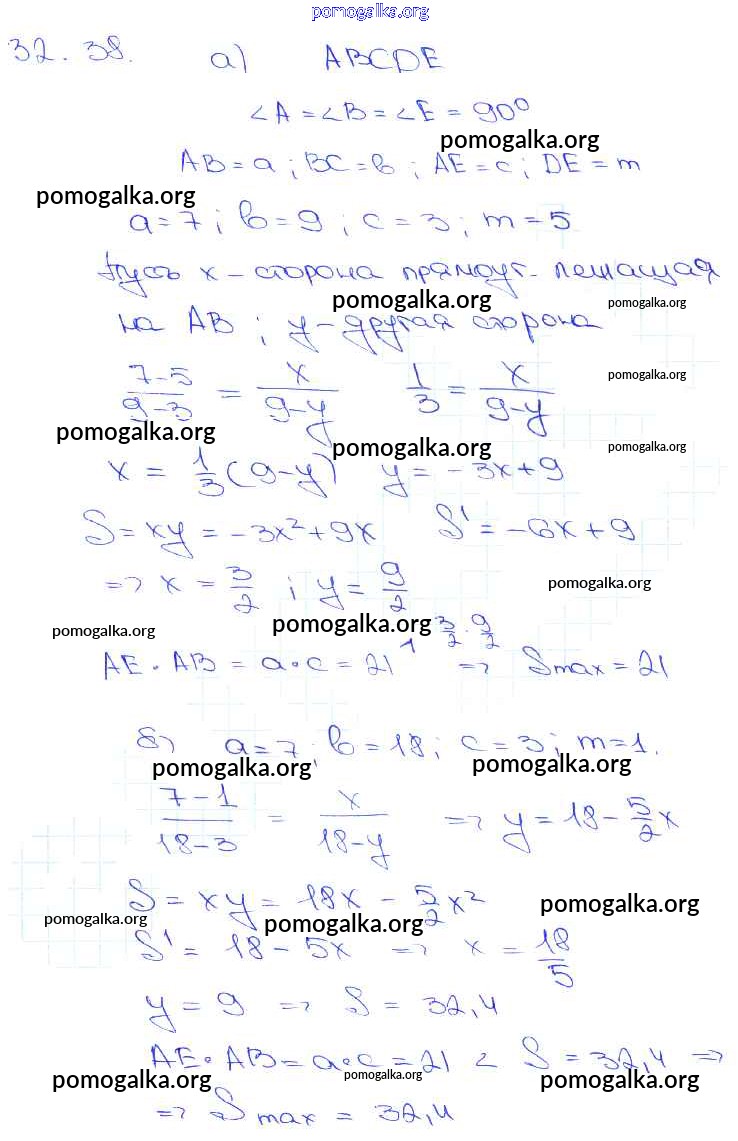 pomogalka.org
32.38. а) ABCDE
∠A = ∠B = ∠E = 90°
pomogalka.org
AB = a ; BC = b ; AE = c ; DE = m
pomogalka.org
a = 7 ; b = 9 ; c = 3 ; m = 5
Пусь x – сторона прямоуг. лежащая
pomogalka.org pomogalka.org
на AB ; y – другая сторона
(7-5)/(9-3) = x/(9-y) 1/3 = x/(9-y)
pomogalka.org
pomogalka.org
pomogalka.org pomogalka.org
x = 1/3 (9-y) y = -3x + 9
S = xy = -3x² + 9x S' = -6x + 9
=> x = 3/2 ; y = 9/2
pomogalka.org
pomogalka.org pomogalka.org
3/2 · 9/2
AE · AB = a · c = 21 => Smax = 21
б) a = 7 ; b = 18 ; c = 3 ; m = 1.
pomogalka.org pomogalka.org
(7-1)/(18-3) = x/(18-y) => y = 18 - 5/2 x
S = xy = 18x - 5/2 x²
pomogalka.org pomogalka.org pomogalka.org
S' = 18 - 5x => x = 18/5
y = 9 => S = 32,4
AE · AB = a · c = 21 < S = 32,4 =>
pomogalka.org pomogalka.org pomogalka.org
=> Smax = 32,4